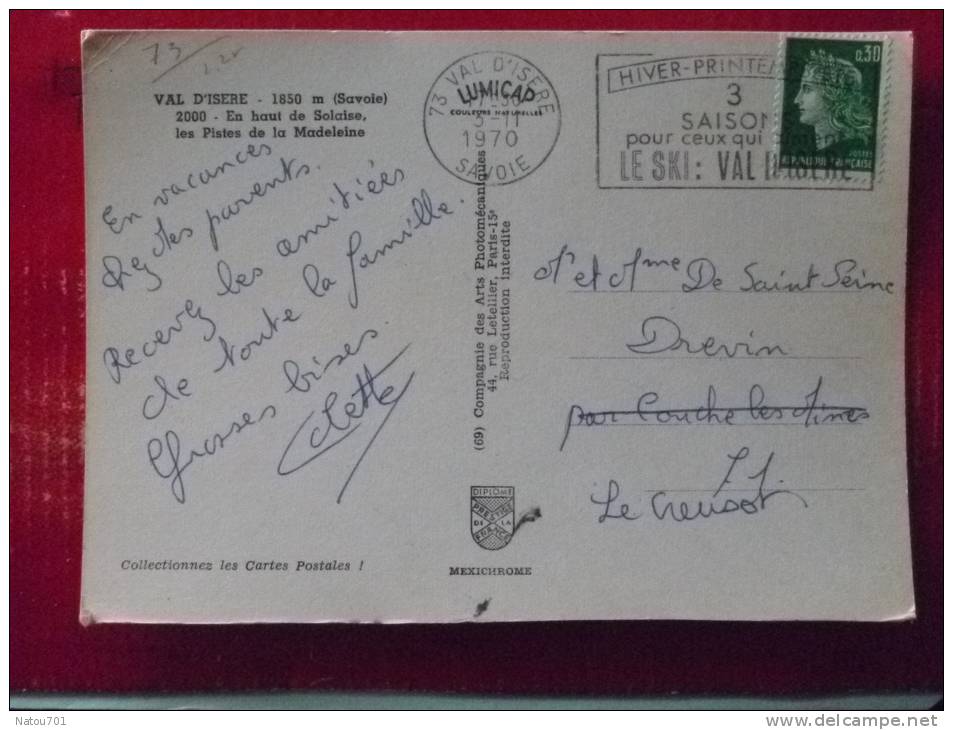 73
VAL D'ISERE - 1850 m (Savoie)
2000 - En haut de Solaise,
les Pistes de la Madeleine
En vacances
chez des parents.
Recevez les amitiées
de toute la famille.
Grosses bises.
Collectionnez les Cartes Postales !
73 VAL D'ISERE
LUMICAP
COULEURS NATURELLES
1970
SAVOIE
HIVER-PRINTEM
3
SAISON
pour ceux qui aiment
LE SKI : VAL D'ISERE
0,30
POSTES
REPUBLIQUE FRANÇAISE
(69) Compagnie des Arts Photomécaniques
44, rue Letellier, Paris-15e
Reproduction interdite
DIPLOME
PRESTIGE
DE LA
FRANCE
MEXICHROME
Mr et Mme De Saint Seine
Drevin
par Couche les Mines
71.
Le Creusot
Natou701
delcampe.net